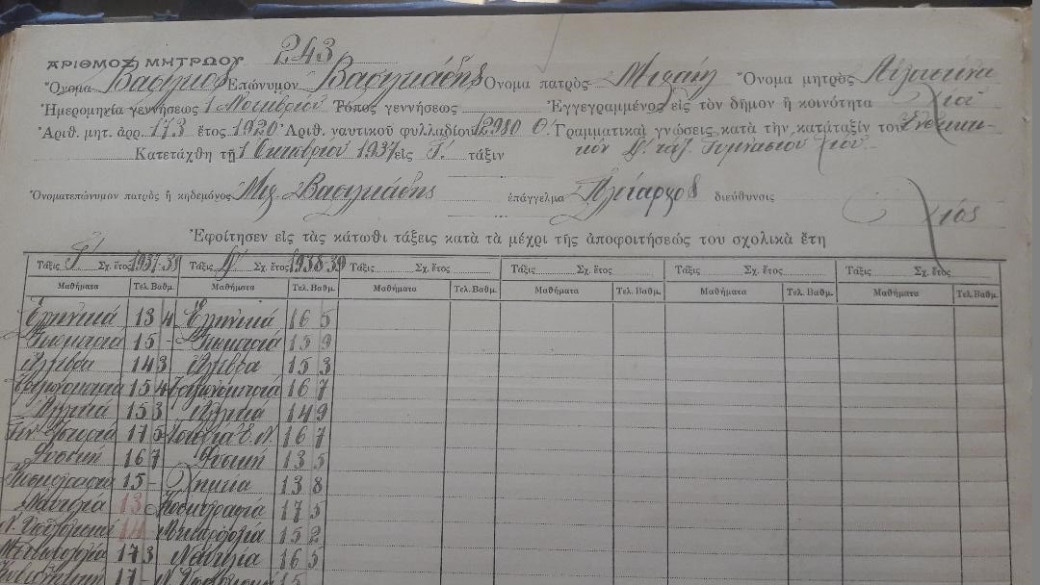 ΑΡΙΘΜΟΣ ΜΗΤΡΩΟΥ 243
Ὄνομα Βασίλειος Ἐπώνυμον Βασιλειάδης Ὄνομα πατρὸς Μιχαὴλ Ὄνομα μητρὸς
Ἡμερομηνία γεννήσεως 1 Νοεμβρίου Τόπος γεννήσεως Ἐγγεγραμμένος εἰς τὸν δῆμον ἢ κοινότητα Χίου
Ἀριθ. μητ. ἀρρ. 173 ἔτος 1920 Ἀριθ. ναυτικοῦ φυλλαδίου 12980 Θ. Γραμματικαὶ γνώσεις κατὰ τὴν κατάταξίν του Ἐνδεικτι-
Κατετάχθη τῇ 1 Οκτωβρίου 1937 εἰς Γ΄. τάξιν κὸν Δ΄. τάξ. Γυμνασίου Χίου
Ὀνοματεπώνυμον πατρὸς ἢ κηδεμόνος Μιχ. Βασιλειάδης ἐπάγγελμα Πλοίαρχος διεύθυνσις Χίος
Ἐφοίτησεν εἰς τὰς κάτωθι τάξεις κατὰ τὰ μέχρι τῆς ἀποφοιτήσεώς του σχολικὰ ἔτη
Τάξις Γ΄ Σχ. ἔτος 1937-38 Τάξις Δ΄ Σχ. ἔτος 1938-39 Τάξις Σχ. ἔτος Τάξις Σχ. ἔτος Τάξις Σχ. ἔτος Τάξις Σχ. ἔτος
Μαθήματα Τελ. Βαθμ. Μαθήματα Τελ. Βαθμ. Μαθήματα Τελ. Βαθμ. Μαθήματα Τελ. Βαθμ. Μαθήματα Τελ. Βαθμ. Μαθήματα Τελ. Βαθμ.
Ἑλληνικά 13 4 Ἑλληνικά 16 5
Γεωμετρία 15 - Γεωμετρία 13 9
Ἄλγεβρα 14 3 Ἄλγεβρα 15 3
Τριγωνομετρία 15 4 Τριγωνομετρία 16 7
Ἀγγλικά 15 3 Ἀγγλικά 14 9
Γεν. Ἱστορία 17 5 Ἱστορία Ε. Ν. 16 7
Φυσική 16 7 Φυσική 13 5
Κοσμογραφία 15 - Χημεία 13 8
Ναυτιλία 13 Κοσμογραφία 17 5
14 Μετεωρολογία 15 2
17 3 Ναυτιλία 16 5
17 - 15